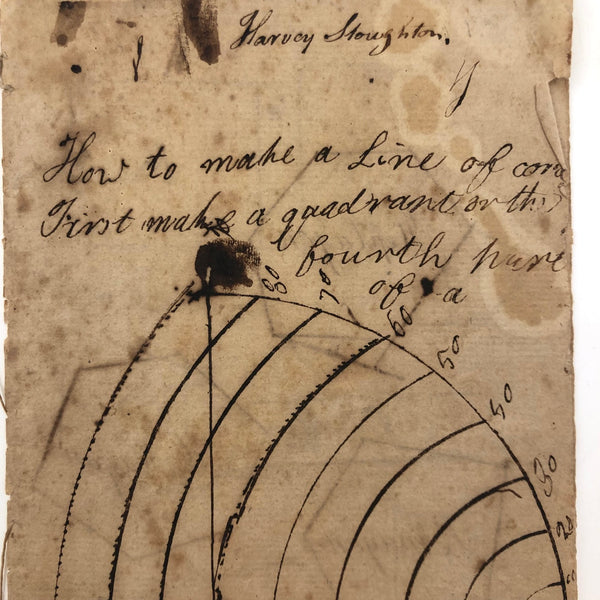 Harvey Stoughton.
How to make a Line of
First make a quadrant or the
fourth part
of a
80
70
60
50
40
30
20